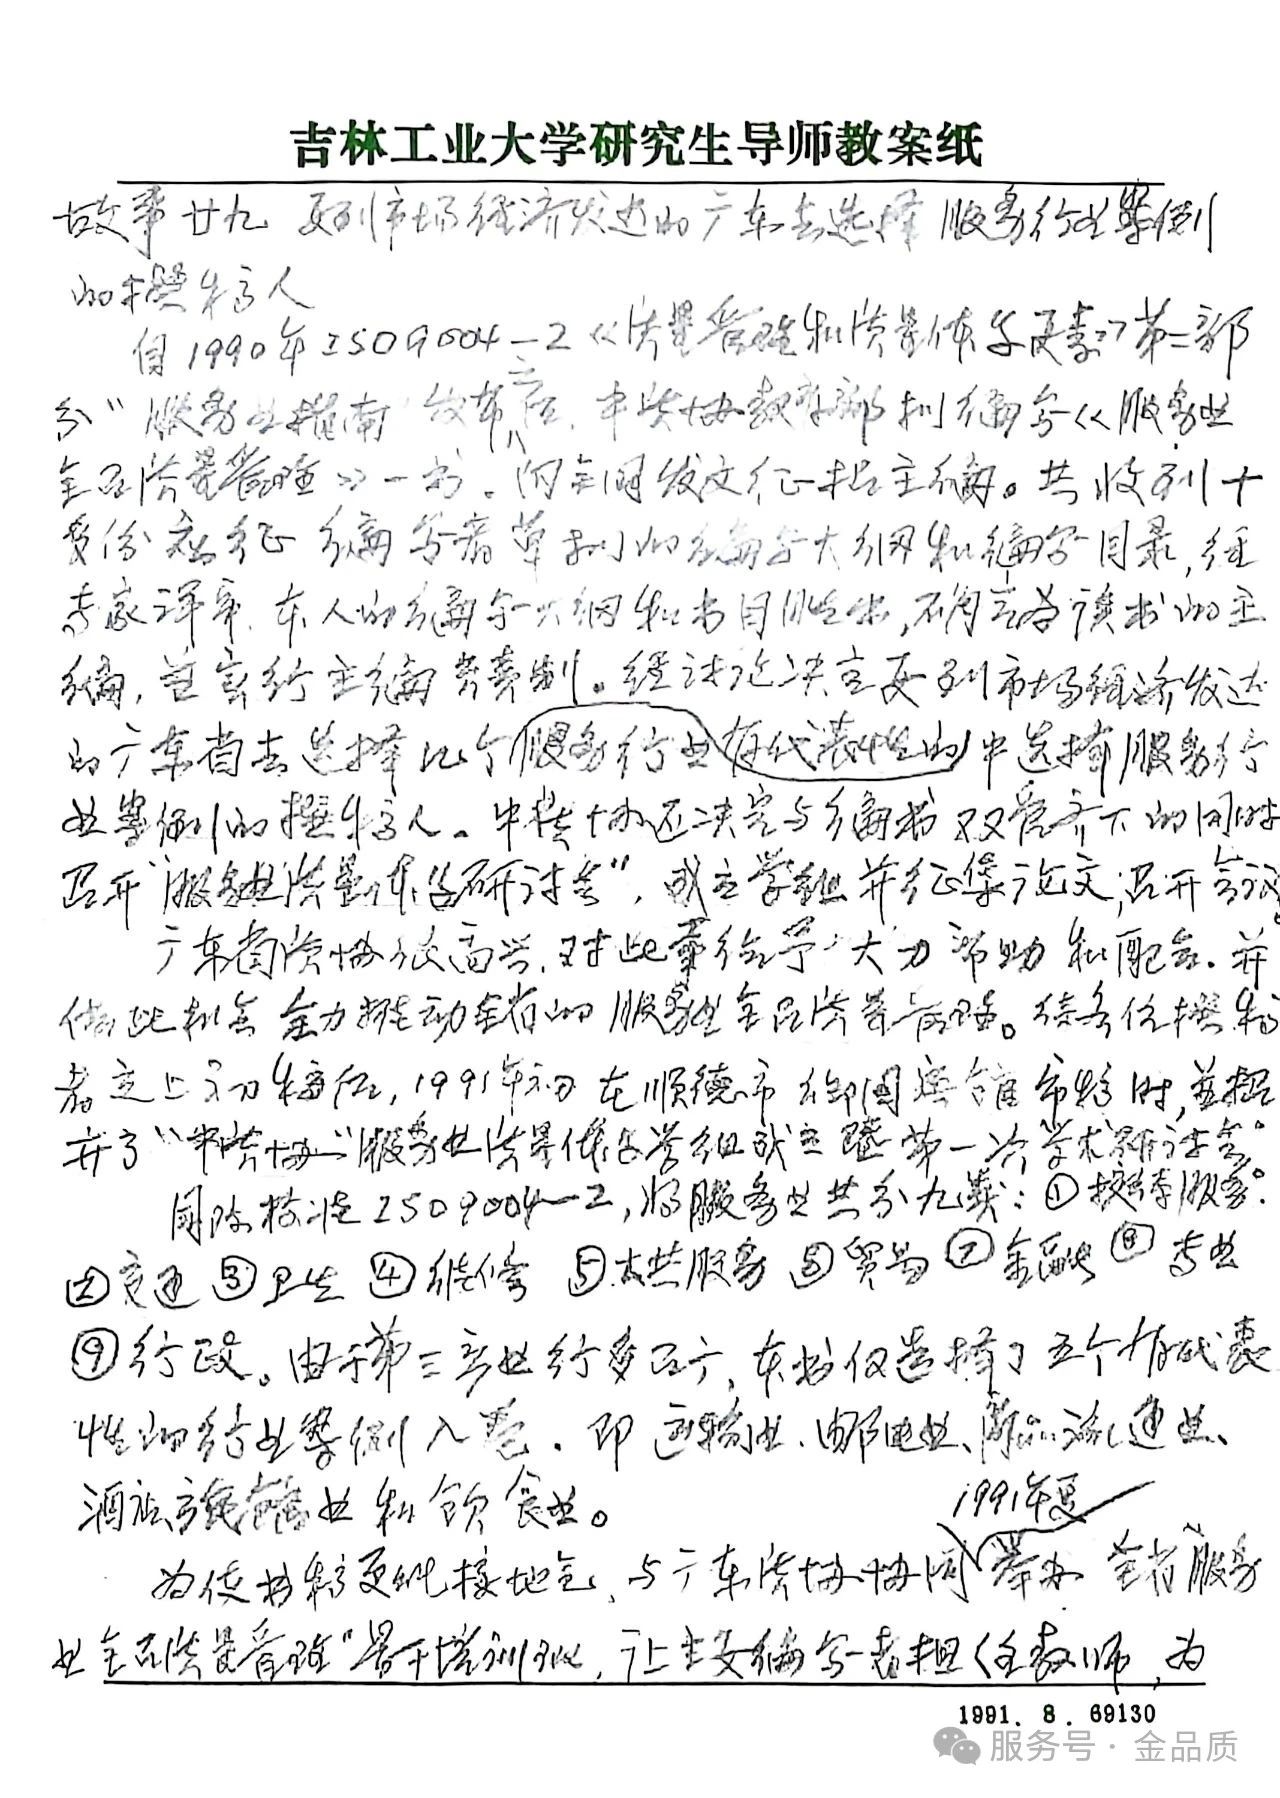 吉林工业大学研究生导师教案纸
故事廿九 要到市场经济发达的广东去选择服务行业案例
的撰稿人
自1990年ISO9004—2《质量管理和质量体系要素》第二部
分"服务业指南"发布之后,中质协教育部拟编写《服务业
全面质量管理》一书。向全国发文征招主编。共收到十
多份应征编写者草拟的编写大纲和编写目录,经
专家评审,本人的编写大纲和书目胜出,确立为该书的主
编,并实行主编负责制。经讨论决定要到市场经济发达
的广东省去选择几个服务行业有代表性的中选择服务行
业案例的撰稿人。中质协还决定与编书双管齐下的同时
召开"服务业质量体系研讨会",成立学组并征集论文,召开会议。
广东省质协很高兴,对此事给予大力帮助和配合。并
借此机会全力推动全省的服务业全面质量管理。待各位撰稿
者交上初稿后,1991年初在顺德市仙泉宾馆审稿时,并召
开了"中质协"服务业质量体系学组成立暨第一次学术研讨会。
国际标准ISO9004—2,将服务业共分九类:①接待服务。
②交通 ③卫生 ④维修 ⑤公共服务 ⑥贸易 ⑦金融 ⑧专业
⑨行政。由于第三产业行多面广,本书仅选择了五个有代表
性的行业案例入卷。即运输业、邮电业、商品流通业、
酒店旅馆业和饮食业。
1991年夏
为使书稿更能接地气,与广东质协协同举办全省"服务
业全面质量管理"骨干培训班,让主要编写者担任教师,为
1991.8.69130
服务号·金品质